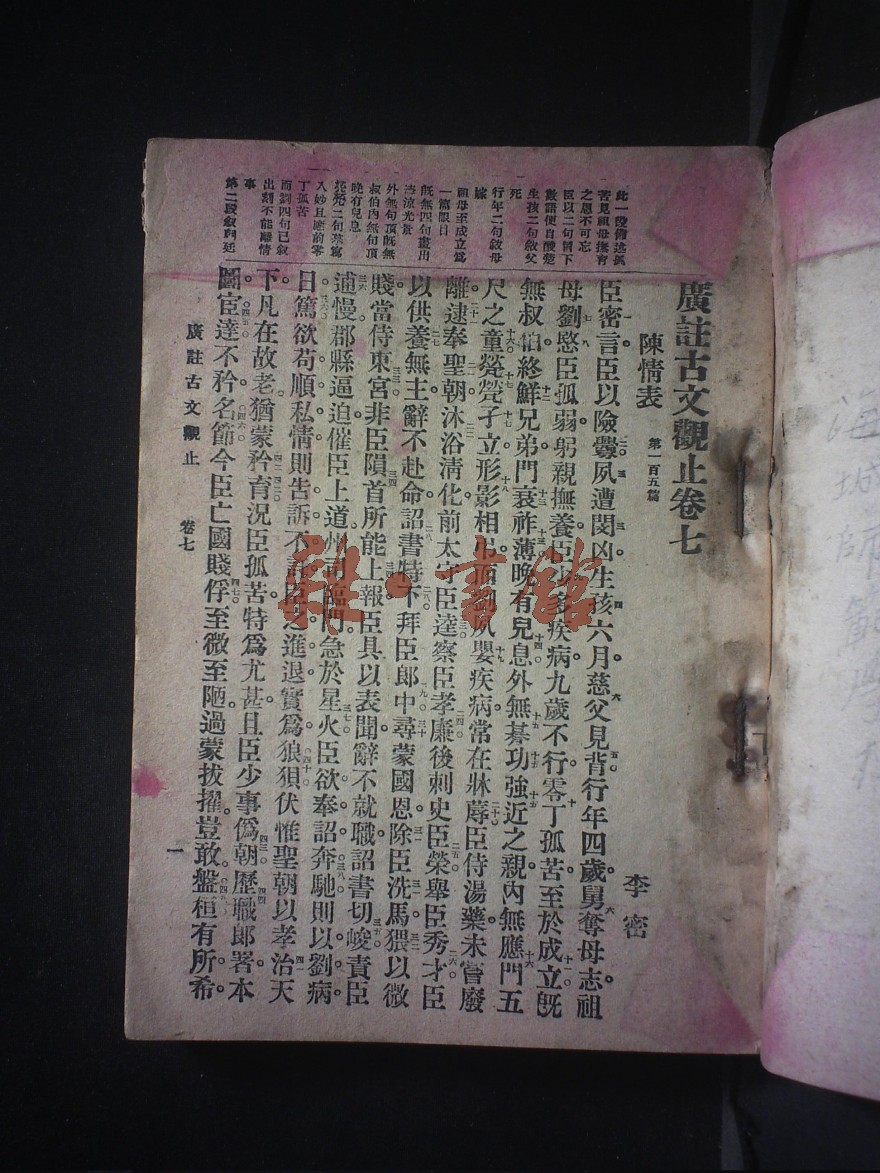 廣註古文觀止卷七
陳情表 第一百五篇 李密
臣密言臣以險釁夙遭閔凶生孩六月慈父見背行年四歲舅奪母志祖
母劉愍臣孤弱躬親撫養臣少多疾病九歲不行零丁孤苦至於成立旣
無叔伯終鮮兄弟門衰祚薄晚有兒息外無朞功強近之親內無應門五
尺之童煢煢孑立形影相弔而劉夙嬰疾病常在牀蓐臣侍湯藥未嘗廢
離逮奉聖朝沐浴淸化前太守臣逵察臣孝廉後刺史臣榮舉臣秀才臣
以供養無主辭不赴命詔書特下拜臣郎中尋蒙國恩除臣洗馬猥以微
賤當侍東宮非臣隕首所能上報臣具以表聞辭不就職詔書切峻責臣
逋慢郡縣逼迫催臣上道州司臨門急於星火臣欲奉詔奔馳則以劉病
日篤欲苟順私情則告訴不許臣之進退實爲狼狽伏惟聖朝以孝治天
下凡在故老猶蒙矜育況臣孤苦特爲尤甚且臣少事僞朝歷職郎署本
圖宦達不矜名節今臣亡國賤俘至微至陋過蒙拔擢豈敢盤桓有所希
此一段備述孤
苦見祖母撫育
之恩不可忘
臣以二句領下
數語便自酸楚
生孩二句敘父
死
行年二句敘母
嫁
祖母至成立爲
一篇眼目
旣無四句畫出
凄涼光景
外無句頂旣無
叔伯內無句頂
晚有兒息
煢煢二句摹寫
入妙且應前零
丁孤苦
而劉四句已敘
出刻不能離情
事
第二段敘朝廷
廣註古文觀止 卷七 一
雜·書館
海城師範